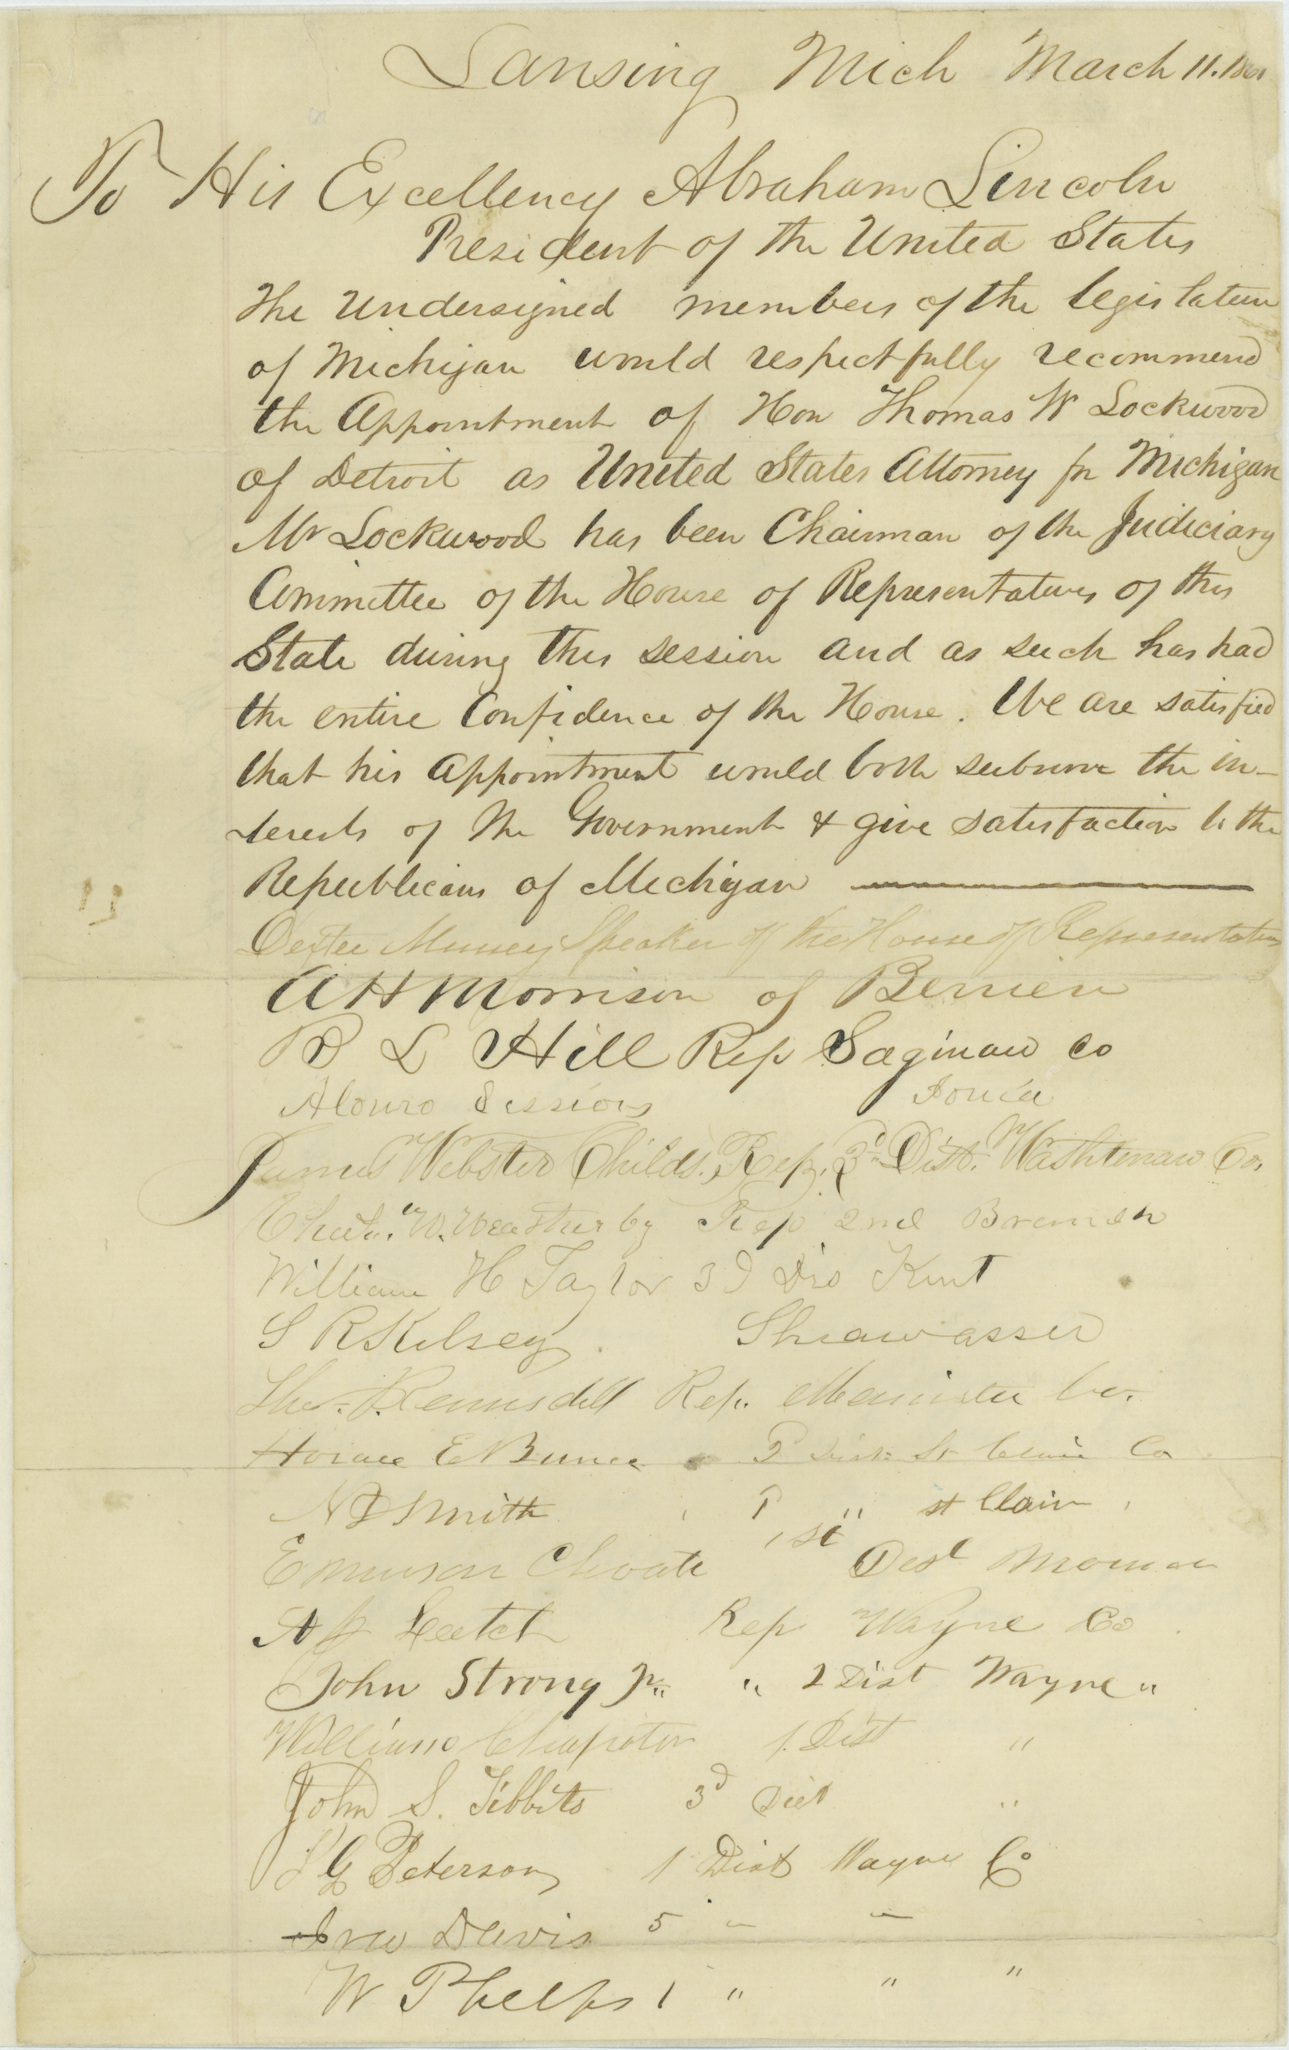 Lansing Mich March 11. 1861
To His Excellency Abraham Lincoln
President of the United States
The Undersigned members of the legislature
of Michigan would respectfully recommend
the Appointment of Hon Thomas W Lockwood
of Detroit as United States Attorney for Michigan
Mr Lockwood has been Chairman of the Judiciary
Committee of the House of Representatives of this
State during this session and as such has had
the entire Confidence of the House. We are satisfied
that his Appointment would both subserve the in-
terests of the Government & give satisfaction to the
Republicans of Michigan
Dexter Mussey Speaker of the House of Representatives
A H Morrison of Berrien
B L Hill Rep Saginaw Co
Alonzo Sessions Ionia
James Webster Childs, Rep. 3d Dist. Washtenaw Co.
W. Weatherby Rep 2nd Branch
William H Taylor 3d Dis Kent
S R Kelsey. Shiawassee
J. Ramsdell Rep. Manistee Co.
Horace E Bunce 2 Dist St Clair Co
Smith 1 " St Clair
Emerson Choate 1st Dist Monroe
Rep Wayne Co
John Strong Jr " 2 Dist Wayne "
William Chapoton 1. Dist "
John S. Tibbits 3d Dist "
G Peterson 1 Dist Wayne Co
Davis 5 " "
W Phelps 1 " " "